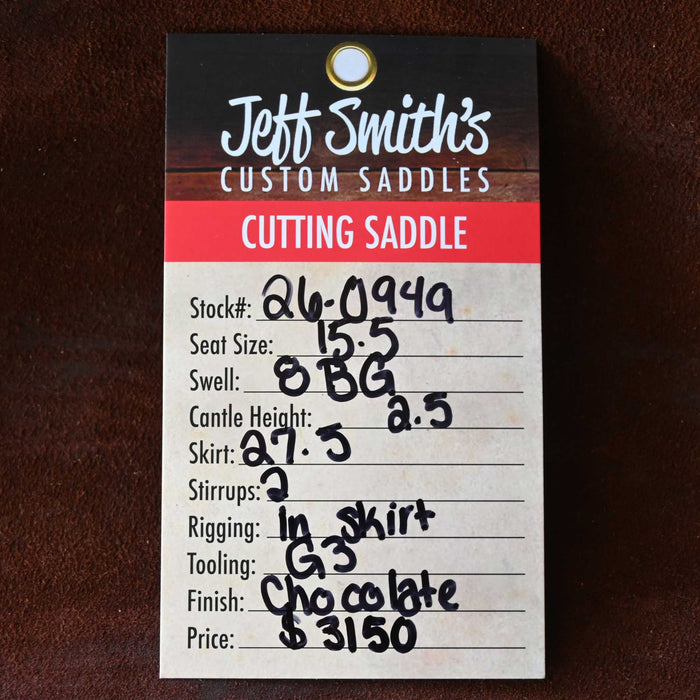 Jeff Smith's
CUSTOM SADDLES
CUTTING SADDLE
Stock#: 26-0949
Seat Size: 15.5
Swell: 8 BG
Cantle Height: 2.5
Skirt: 27.5
Stirrups: 2
Rigging: In Skirt
Tooling: G3
Finish: Chocolate
Price: $ 3150